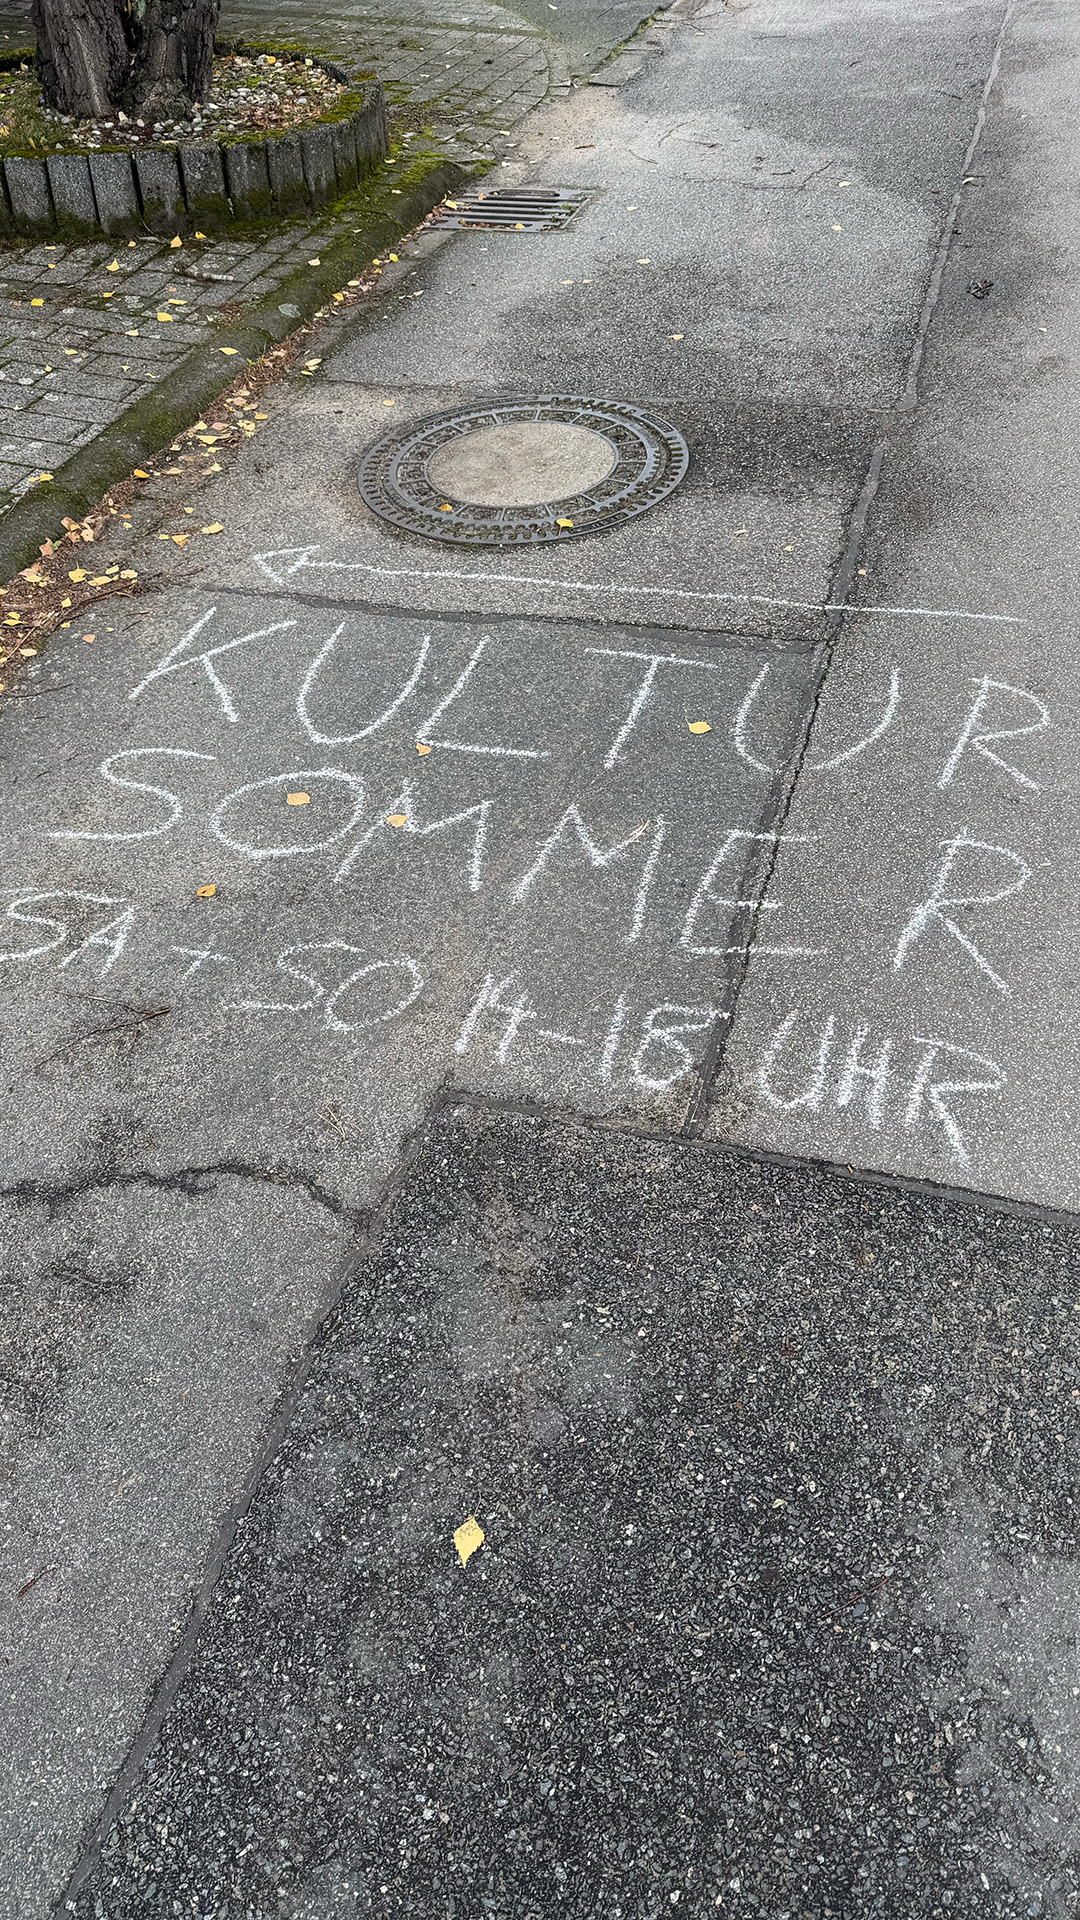 KULTUR
SOMMER
SA + SO 14-18 UHR